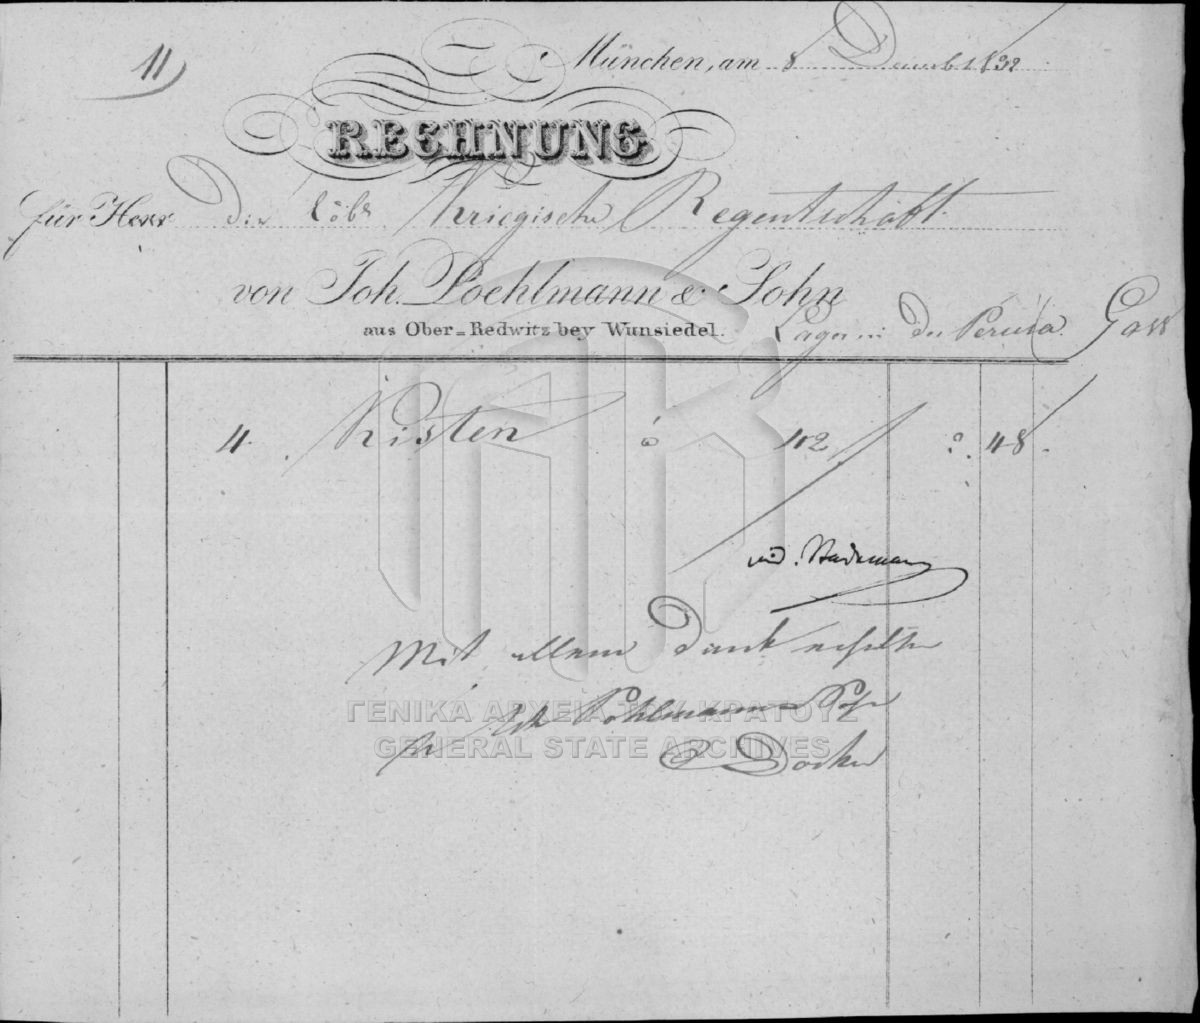 11
München, am 8 Decemb 1832
RECHNUNG
für Herr Die löbl Kriegische Regentschaft
von Joh. Poehlmann & Sohn
aus Ober-Redwitz bey Wunsiedel.
Lager in der Perusa Gass
4. Kisten à 42 2. 48.
vid.
Mit allem Dank erhalten
Joh Pöhlmann & Sohn
ΓΕΝΙΚΑ ΑΡΧΕΙΑ ΤΟΥ ΚΡΑΤΟΥΣ
GENERAL STATE ARCHIVES